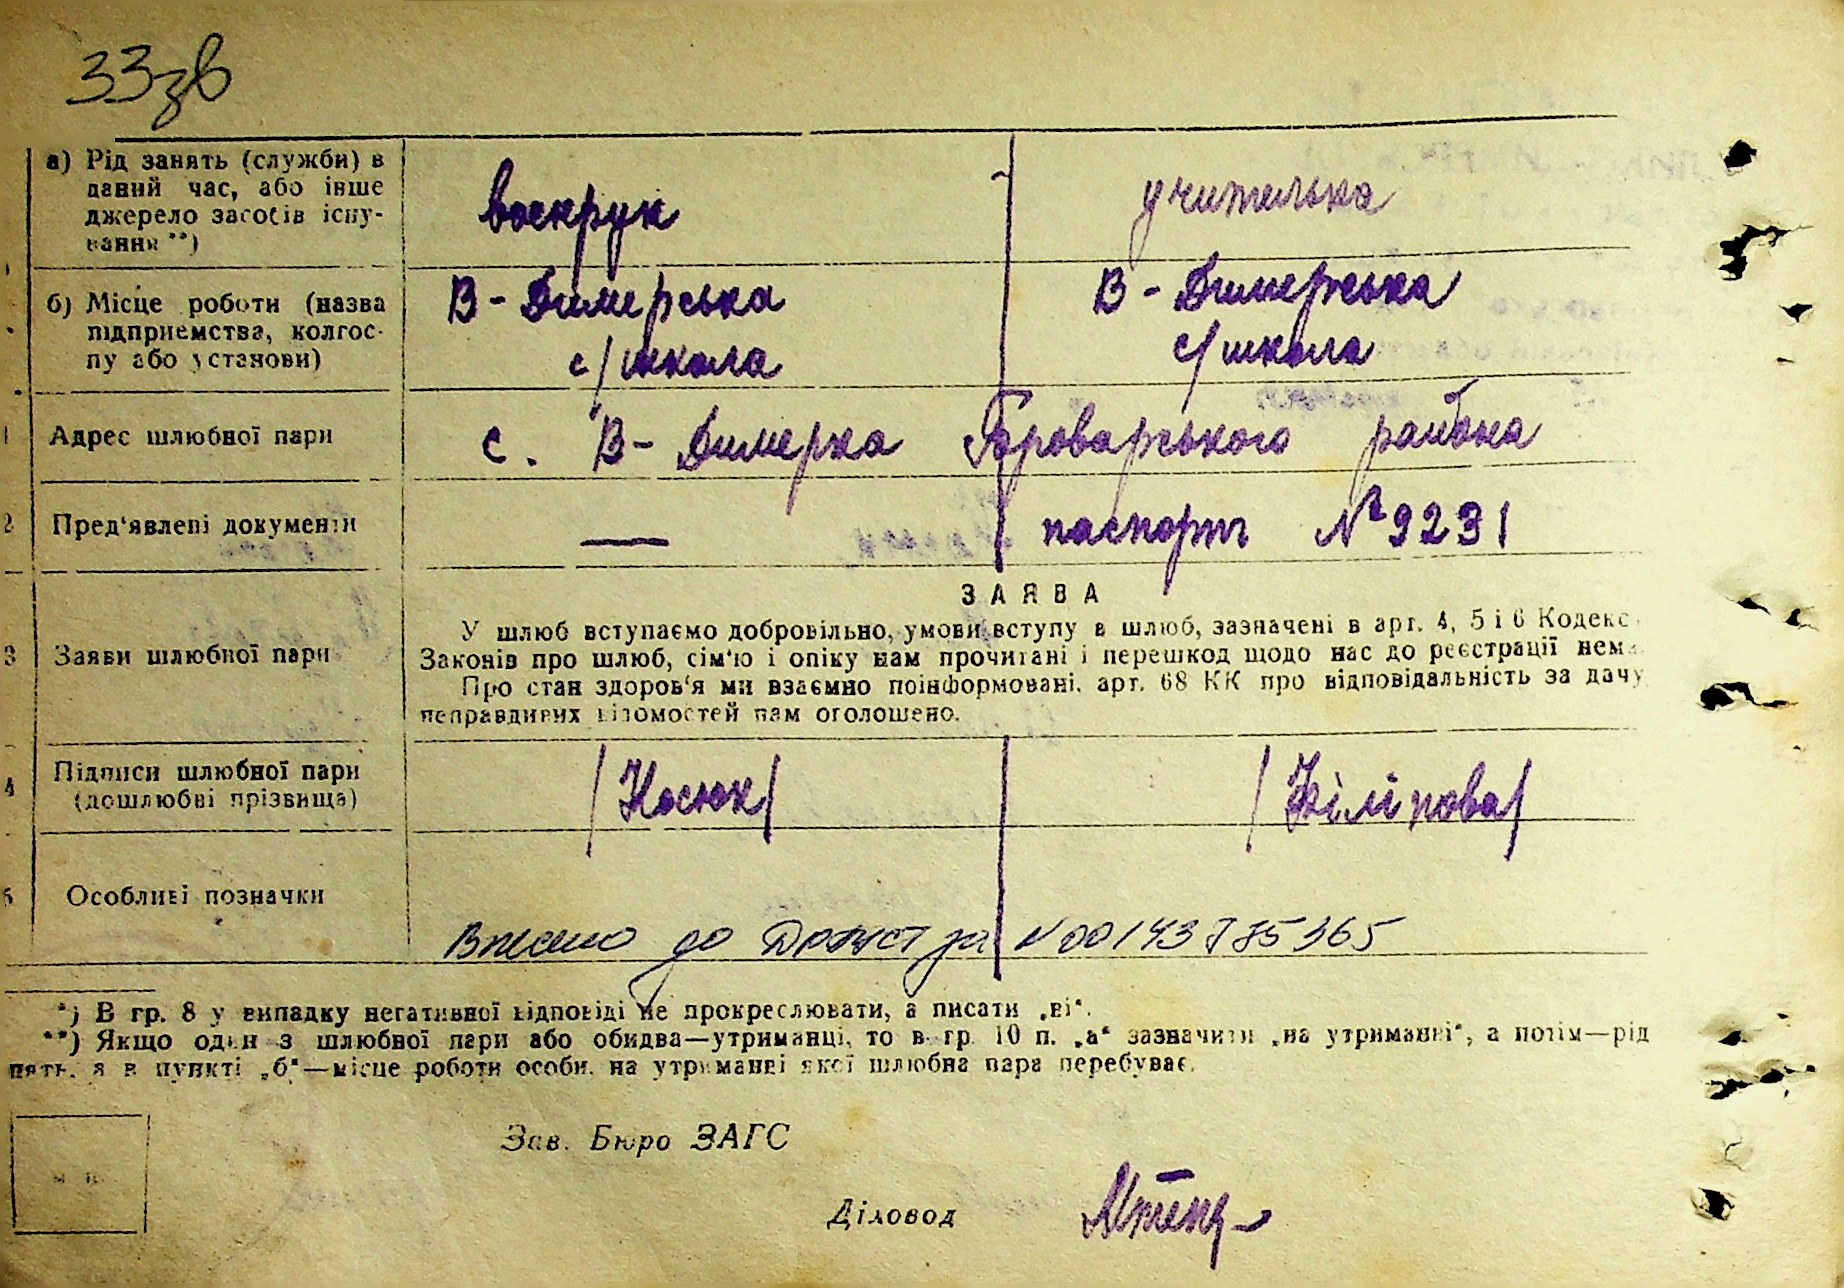 33зв
а) Рід занять (служби) в
даний час, або інше
джерело засобів існу-
вання **)
воєнрук
учителька
б) Місце роботи (назва
підприємства, колгос-
пу або установи)
В-Димерська
с/школа
В-Димерська
с/школа
1 Адрес шлюбної пари
с. В-Димерка Броварського района
2 Пред'явлені документи
— паспорт №9231
ЗАЯВА
3 Заяви шлюбної пари
У шлюб вступаємо добровільно, умови вступу в шлюб, зазначені в арт. 4, 5 і 6 Кодекс
Законів про шлюб, сім'ю і опіку нам прочитані і перешкод щодо нас до реєстрації нема
Про стан здоров'я ми взаємно поінформовані. арт. 68 КК про відповідальність за дачу
неправдивих відомостей нам оголошено.
4 Підписи шлюбної пари
(дошлюбні прізвища)
/Носюк/
/Філіпова/
5 Особливі позначки
Внесено до ДРАЦСГ за N 00143785365
*) В гр. 8 у випадку негативної відповіді не прокреслювати, а писати „ні“.
**) Якщо один з шлюбної пари або обидва—утриманці, то в гр. 10 п. „а“ зазначити „на утриманні“, а потім—рід
нять, а в пункті „б“—місце роботи особи, на утриманні якої шлюбна пара перебуває.
Зав. Бюро ЗАГС
м п
Діловод